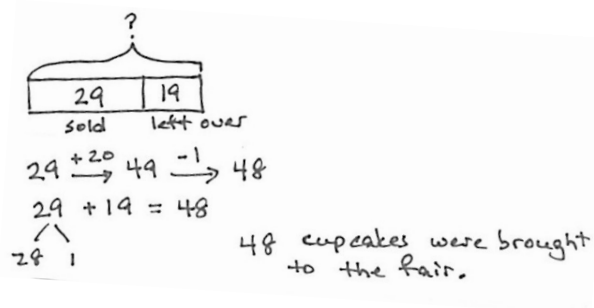 ?
29 19
sold left over
29 +20 → 49 -1 → 48
29 + 19 = 48
28 1
48 cupcakes were brought
to the fair.